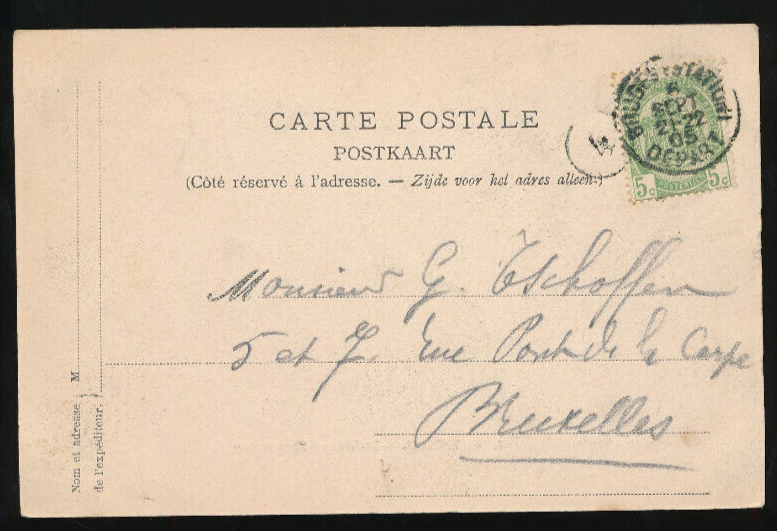 CARTE POSTALE
POSTKAART
(Côté réservé à l'adresse. — Zijde voor het adres alleen.)
BRUGES (STATION)
6
SEPT
21-22
05
DEPART
4
5c 5c
Monsieur G. Tschoffen
5 et 7, rue Pont de la Carpe
Bruxelles
Nom et adresse
de l'expéditeur.
M